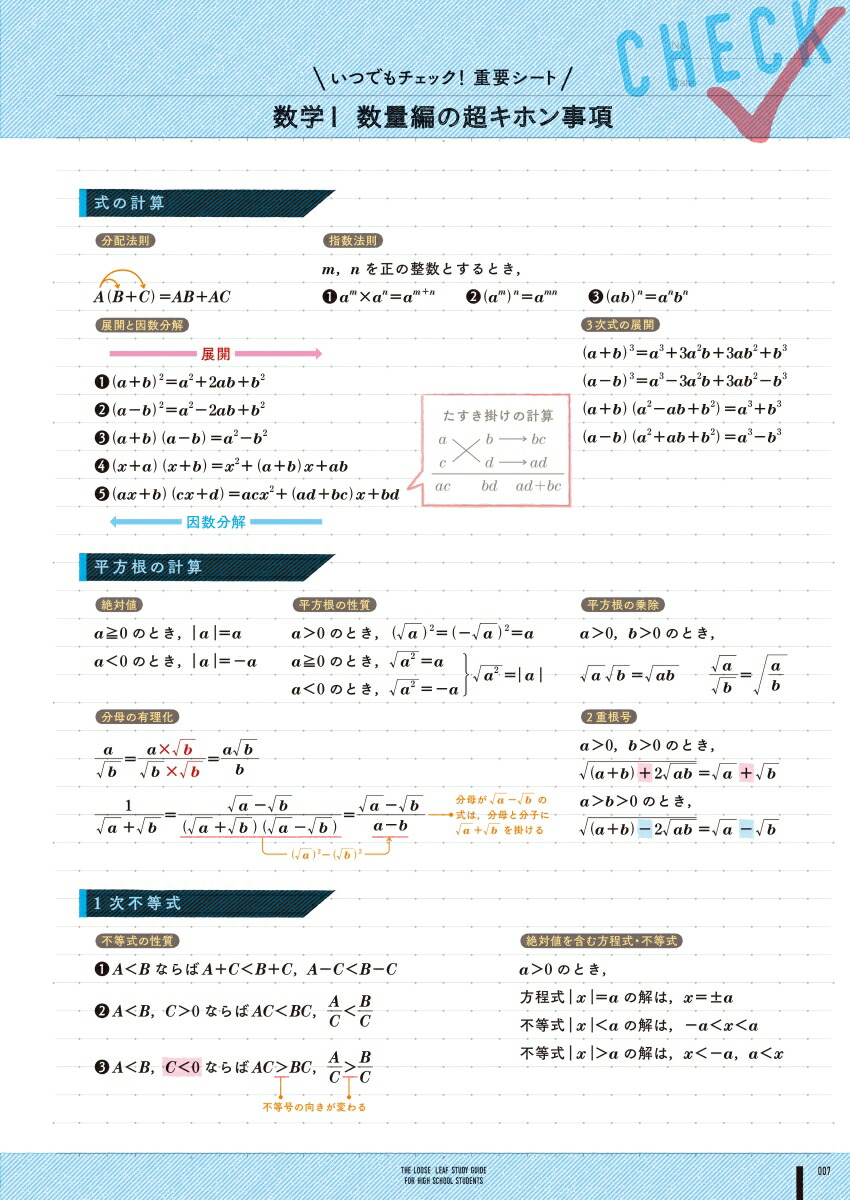 CHECK
No.
Date
いつでもチェック! 重要シート
数学Ⅰ 数量編の超キホン事項
式の計算
分配法則
A(B+C)=AB+AC
指数法則
m, n を正の整数とするとき,
❶ aᵐ×aⁿ=aᵐ⁺ⁿ ❷ (aᵐ)ⁿ=aᵐⁿ ❸ (ab)ⁿ=aⁿbⁿ
展開と因数分解
展開
❶ (a+b)²=a²+2ab+b²
❷ (a−b)²=a²−2ab+b²
❸ (a+b)(a−b)=a²−b²
❹ (x+a)(x+b)=x²+(a+b)x+ab
❺ (ax+b)(cx+d)=acx²+(ad+bc)x+bd
因数分解
たすき掛けの計算
a b → bc
c d → ad
ac bd ad+bc
3次式の展開
(a+b)³=a³+3a²b+3ab²+b³
(a−b)³=a³−3a²b+3ab²−b³
(a+b)(a²−ab+b²)=a³+b³
(a−b)(a²+ab+b²)=a³−b³
平方根の計算
絶対値
a≧0 のとき, |a|=a
a<0 のとき, |a|=−a
平方根の性質
a>0 のとき, (√a)²=(−√a)²=a
a≧0 のとき, √a²=a
a<0 のとき, √a²=−a } √a²=|a|
平方根の乗除
a>0, b>0 のとき,
√a√b=√ab √a/√b=√(a/b)
分母の有理化
a/√b=a×√b/√b×√b=a√b/b
1/(√a+√b)=(√a−√b)/((√a+√b)(√a−√b))=(√a−√b)/(a−b)
(√a)²−(√b)²
分母が√a−√b の
式は, 分母と分子に
√a+√b を掛ける
2重根号
a>0, b>0 のとき,
√((a+b)+2√ab)=√a+√b
a>b>0 のとき,
√((a+b)−2√ab)=√a−√b
1次不等式
不等式の性質
❶ A<B ならば A+C<B+C, A−C<B−C
❷ A<B, C>0 ならば AC<BC, A/C<B/C
❸ A<B, C<0 ならば AC>BC, A/C>B/C
不等号の向きが変わる
絶対値を含む方程式・不等式
a>0 のとき,
方程式|x|=a の解は, x=±a
不等式|x|<a の解は, −a<x<a
不等式|x|>a の解は, x<−a, a<x
THE LOOSE LEAF STUDY GUIDE
FOR HIGH SCHOOL STUDENTS
007